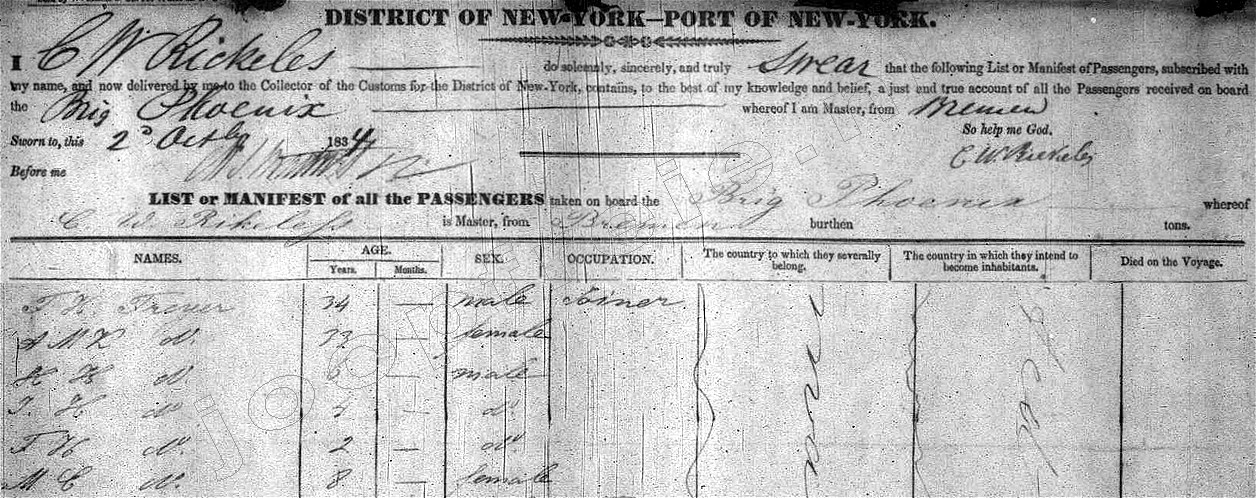 DISTRICT OF NEW-YORK—PORT OF NEW-YORK.
I C W Rickeles do solemnly, sincerely, and truly Swear that the following List or Manifest of Passengers, subscribed with
my name, and now delivered by me to the Collector of the Customs for the District of New-York, contains, to the best of my knowledge and belief, a just and true account of all the Passengers received on board
the Brig Phoenix whereof I am Master, from Bremen
Sworn to, this 2d Octbr 1834 So help me God.
Before me C. W. Rickeles
LIST or MANIFEST of all the PASSENGERS taken on board the Brig Phoenix whereof
C W Rikeless is Master, from Bremen burthen tons.
NAMES. AGE. SEX. OCCUPATION. The country to which they severally belong. The country in which they intend to become inhabitants. Died on the Voyage.
Years. Months.
34 — male Joiner
A M K Do. — female
H H Do. — male
J. H Do — do
F H Do. 2 — do
M C Do. 8 — female